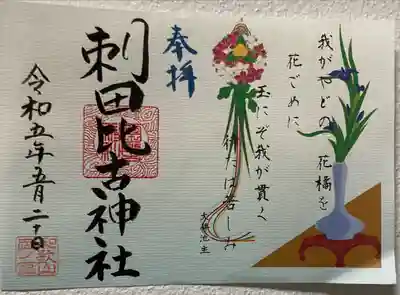 我がやどの 花橘を
花ごめに
玉にぞ我が貫く
待たば苦しみ
大伴池主
奉拝
刺田比古神社
令和五年五月二十日